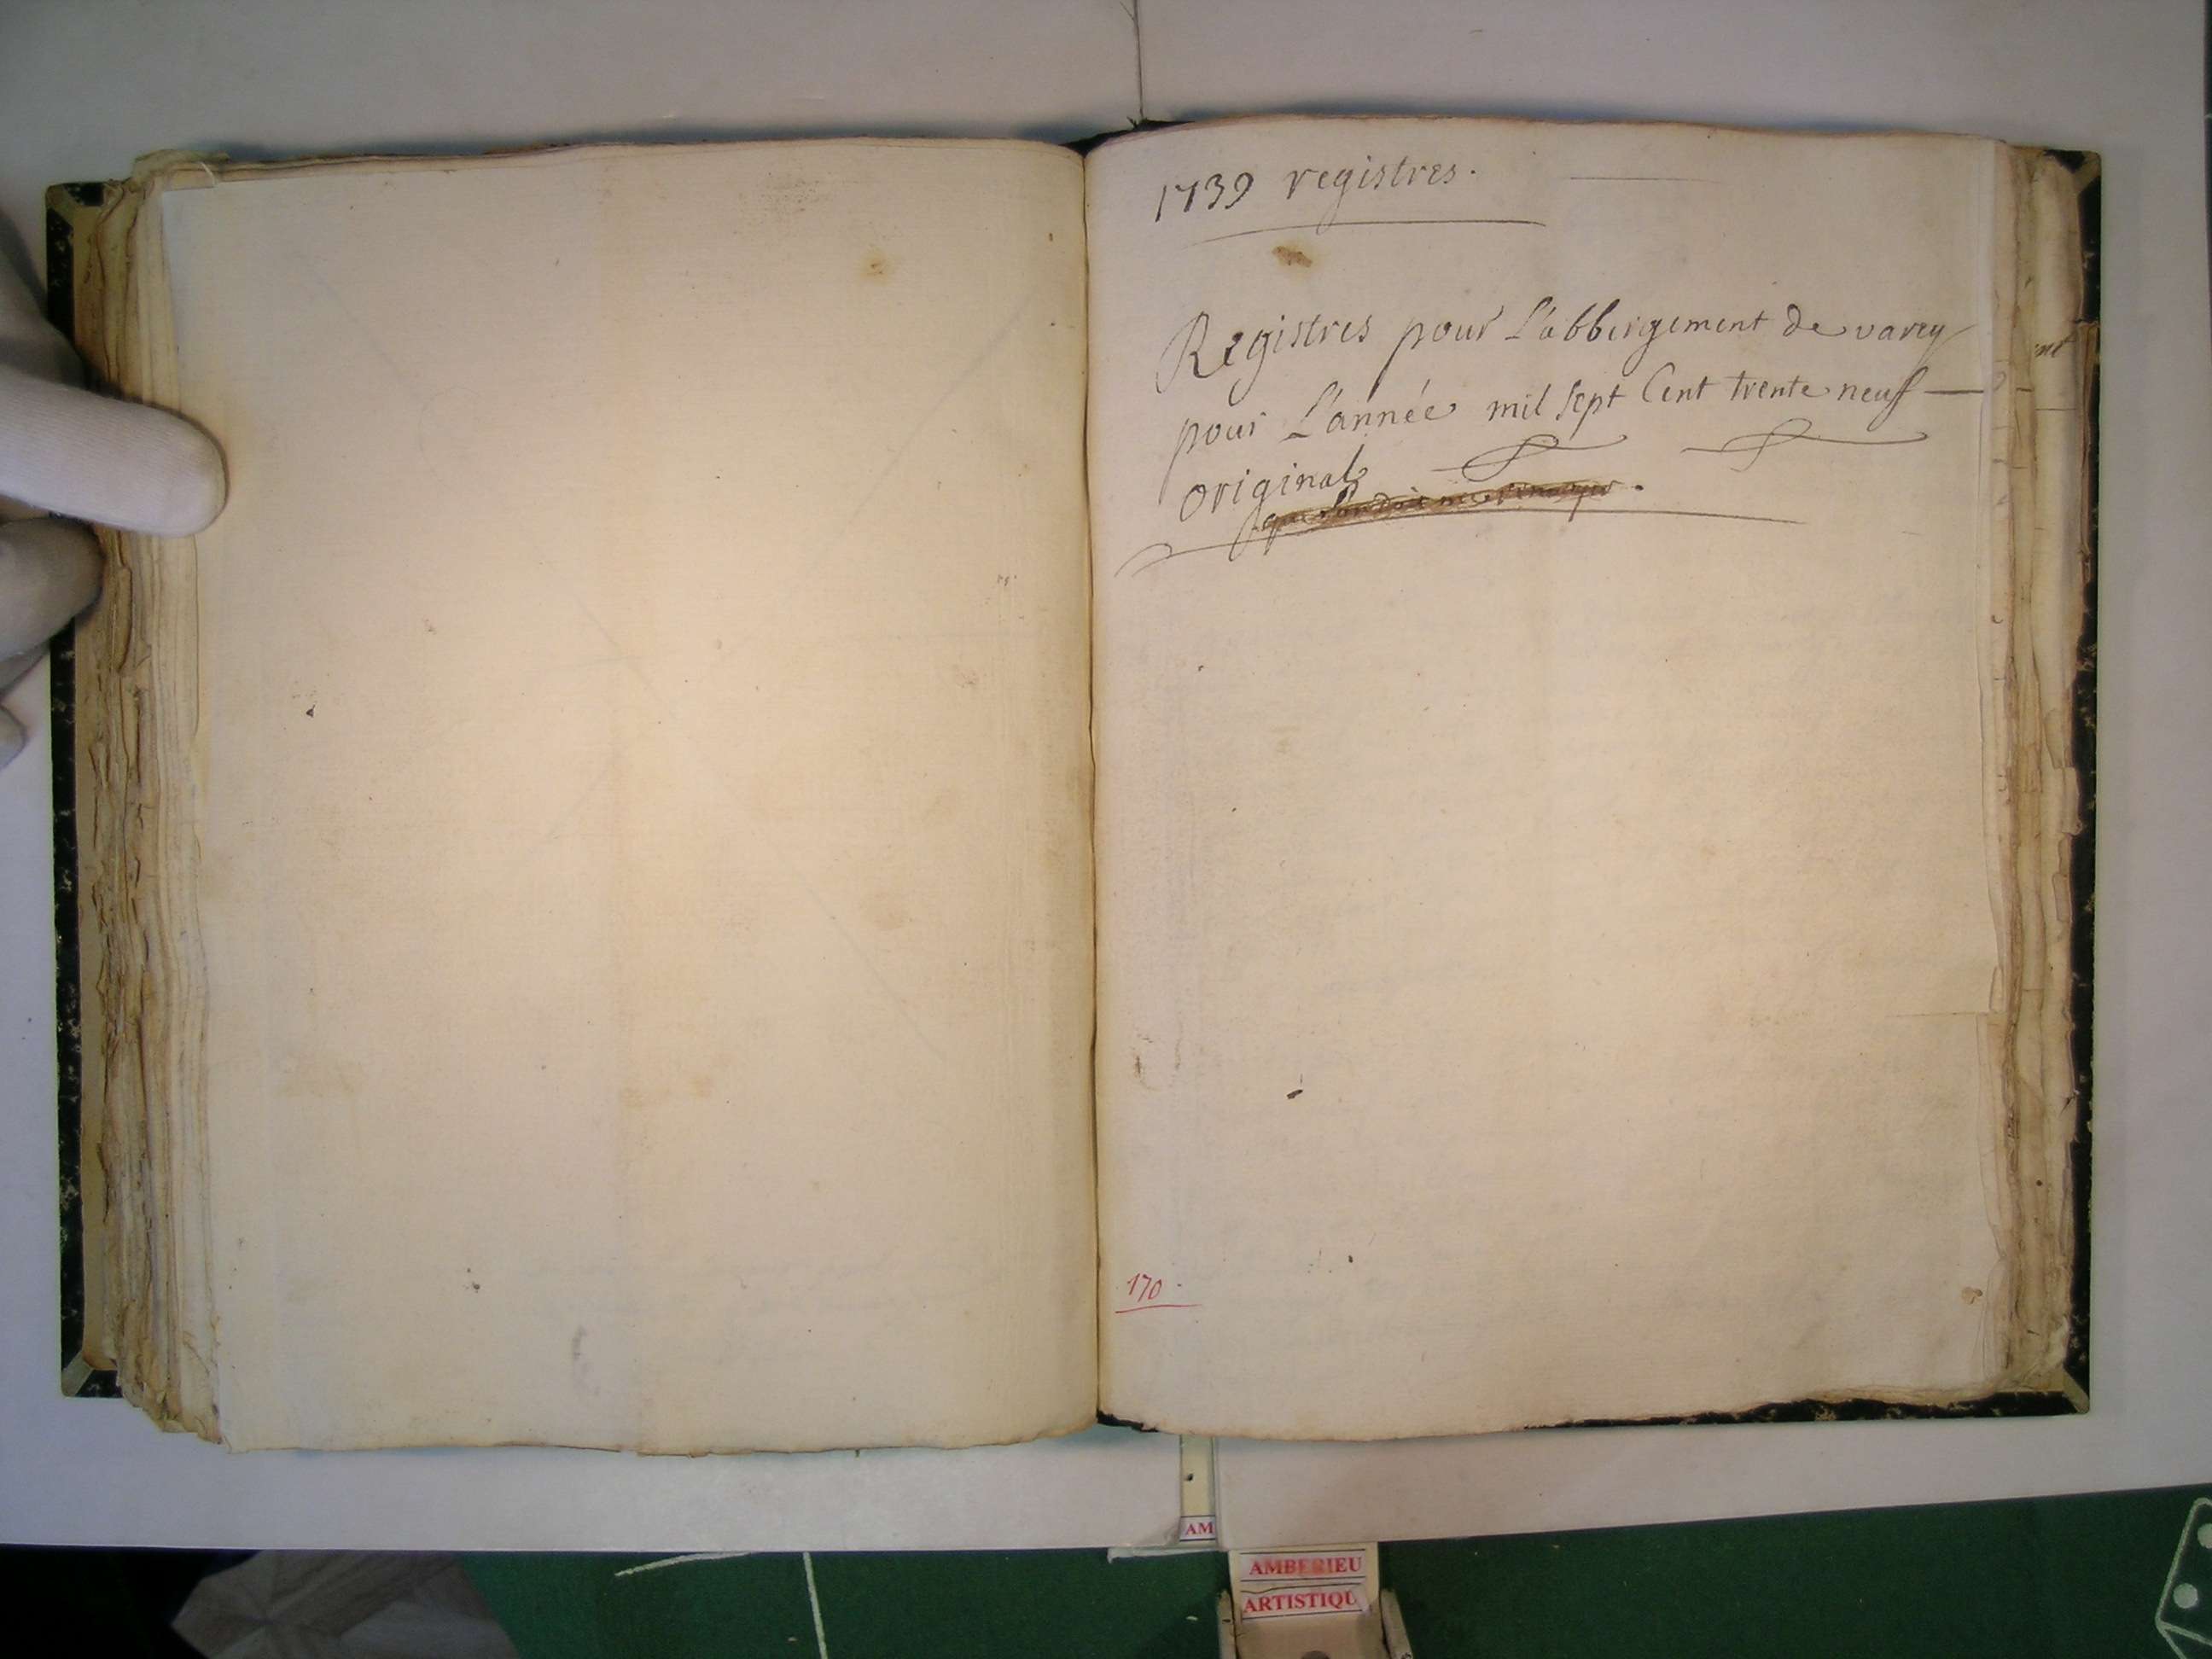 1739 registres.
Registres pour L'abbergement de varey
pour L'année mil sept Cent trente neuf
original
170
AM
AMBERIEU
ARTISTIQU